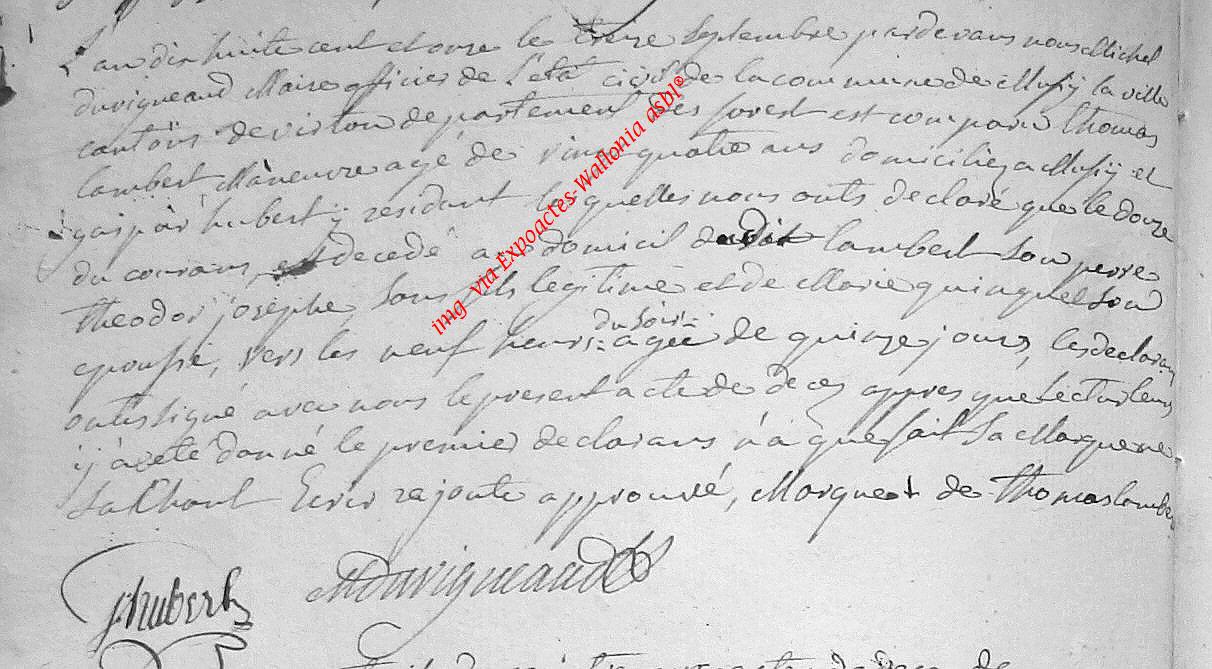 L'an dix huite cent et onze le treize Septembre pardevans nous Michel
duvigneaud Maire officier de L'etat civil de la commune de Mussÿ la ville
cantons de virton departement des forest est comparu thomas
lambert, Maneuvre agé de vingt quatre ans domiciliez a Mussÿ et
gaspar hubert ÿ residant lesquelles nous onts declaré que le douze
du courans, est decedé au domicil dudit lambert son perre
theodor josephe, Sons fils legitime et de Marie quinquel son
epousse, vers les neuf heurs du Soir agée de quinze jours, les declarans
onts signé avec nous le present acte de deces appres que Lectur leurs
ÿ a eté donné le premier declarans n'a que fait Sa Marque ne
Sachant Ecrir rajoute approuvé, Marque + de thomas lambert
ghubert MDuvigneaud
img via Expoactes-Wallonia asbl®